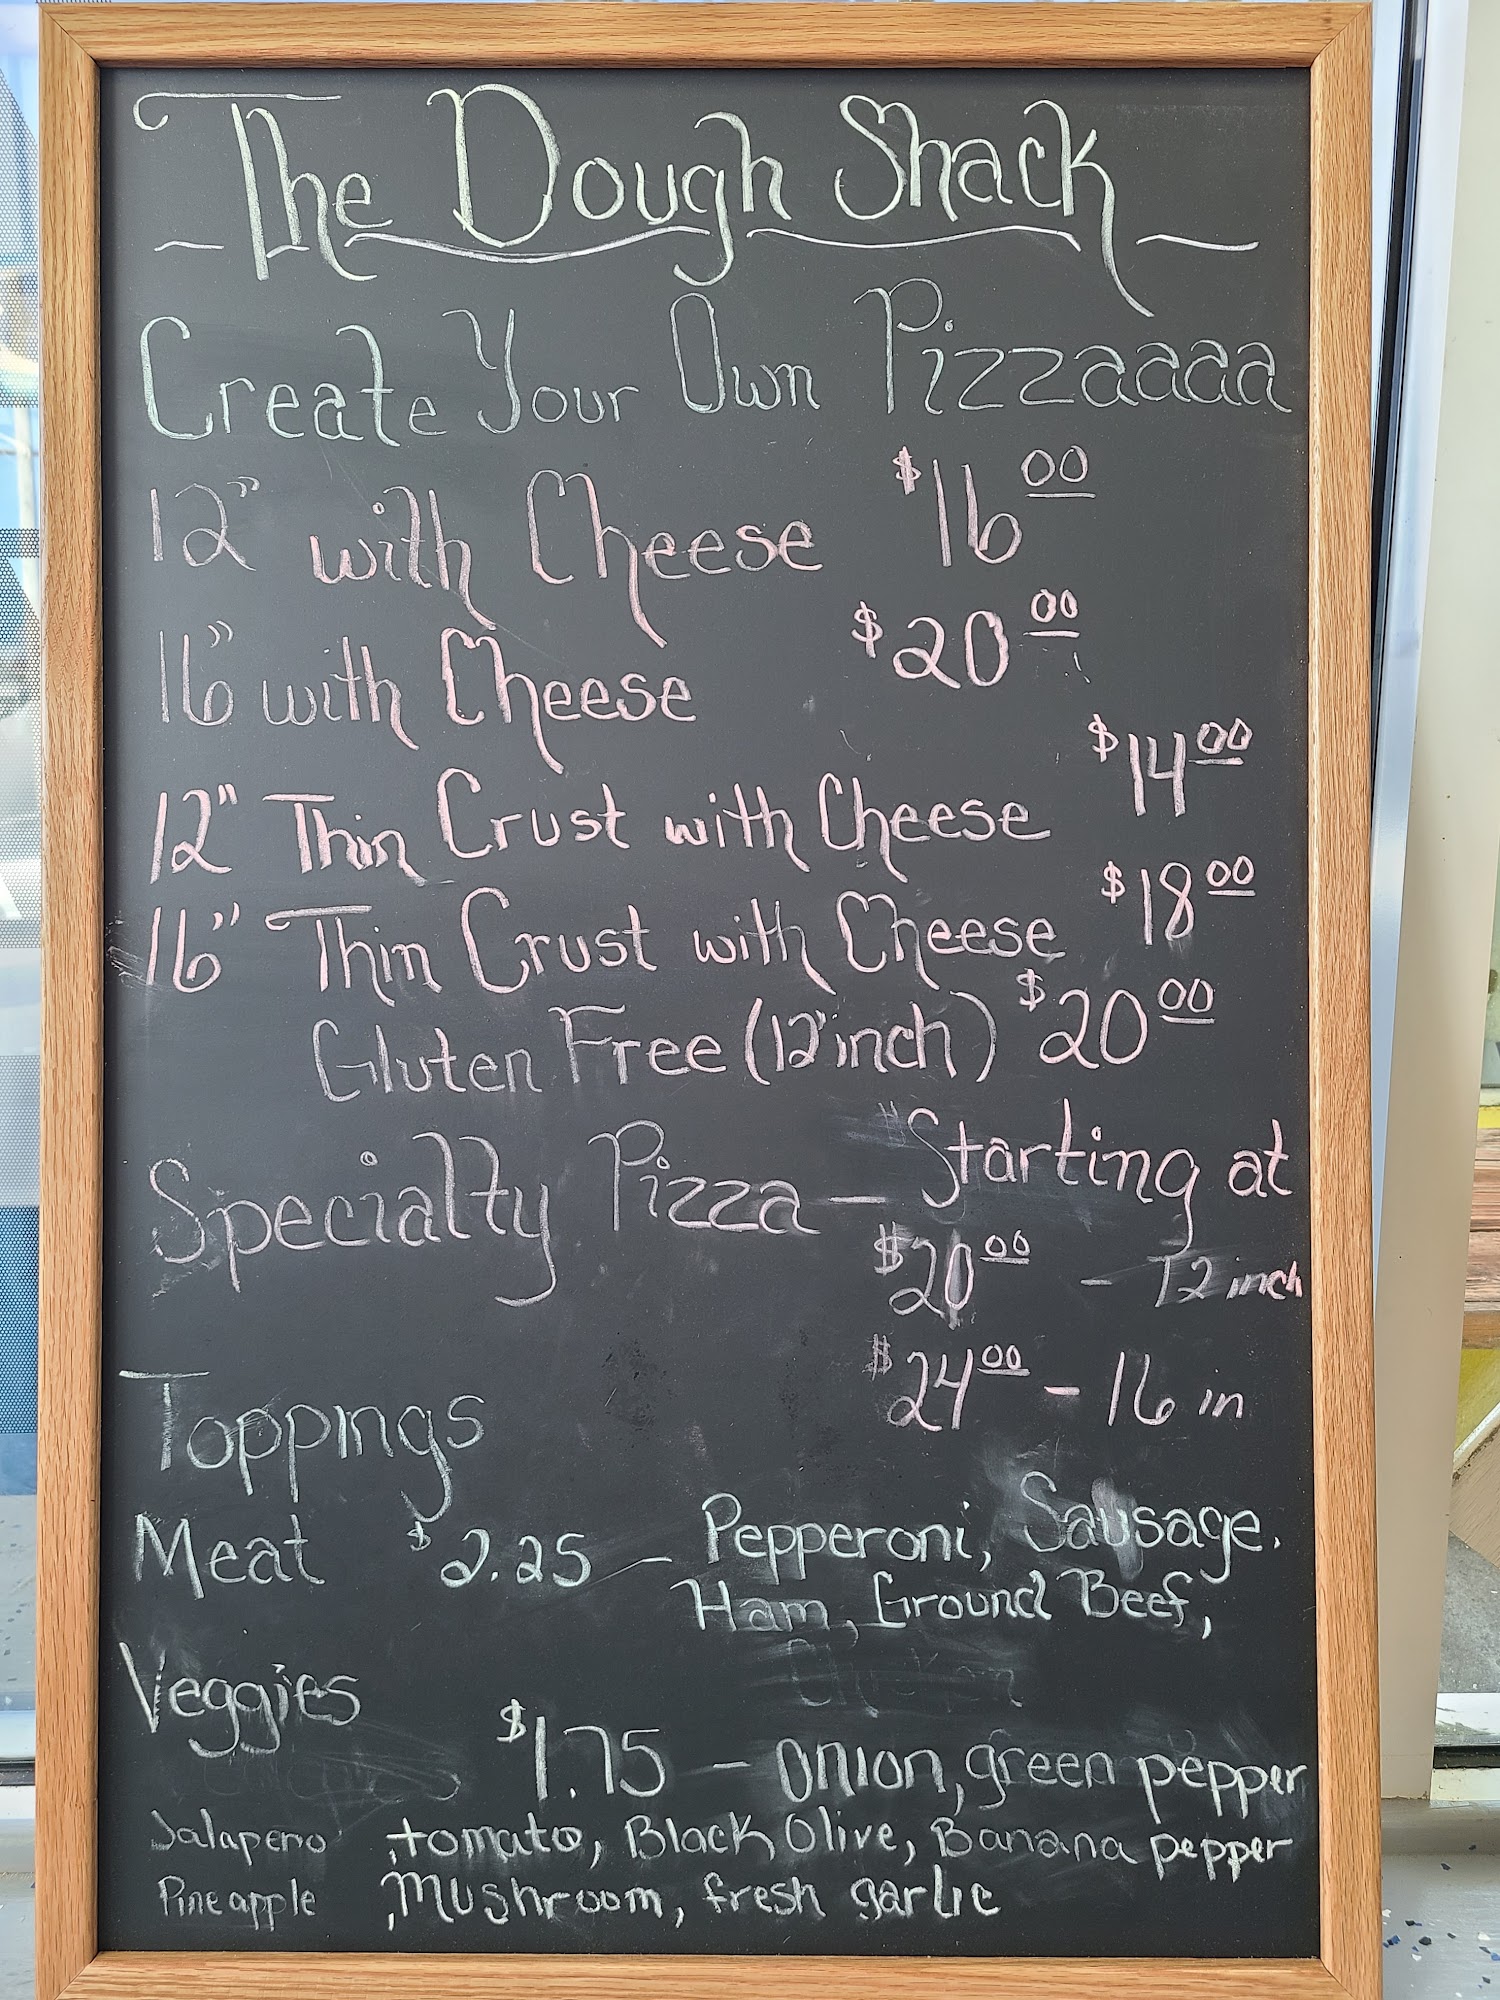 The Dough Shack
Create Your Own Pizzaaaa
12" with Cheese $16.00
16" with Cheese $20.00
12" Thin Crust with Cheese $14.00
16" Thin Crust with Cheese $18.00
Gluten Free (12"inch) $20.00
Specialty Pizza — Starting at
$20.00 - 12 inch
$24.00 - 16 in
Toppings
Meat $2.25 — Pepperoni, Sausage.
Ham, Ground Beef,
Chicken
Veggies
$1.75 — onion, green pepper
Jalapeno , tomato, Black Olive, Banana pepper
Pineapple , Mushroom, fresh garlic